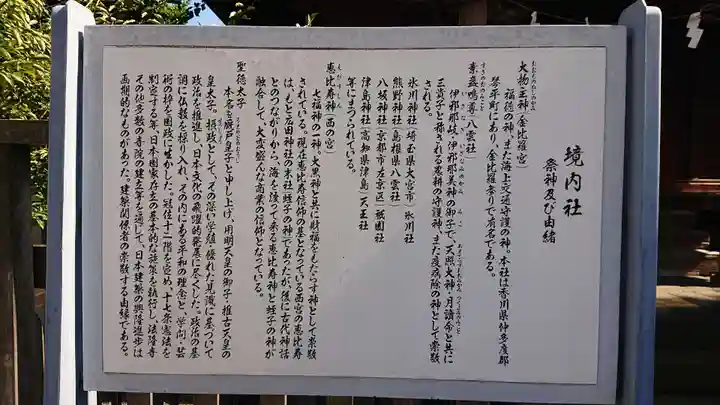 境内社
祭神及び由緒
大物主神(金比羅宮)
福徳の神、また海上交通守護の神、本社は香川県仲多度郡
琴平町にあり、金比羅参りで有名である。
素盞鳴尊(八雲社)
伊邪那岐、伊邪那美神の御子で、天照大神・月讀命と共に
三貴子と称される農耕の守護神、また疫病除の神として崇敬
される。
氷川神社(埼玉県大宮市)氷川社
熊野神社(島根県八雲社)
八坂神社(京都市左京区)祇園社
津島神社(高知県津島)天王社
等にまつられている。
恵比寿神(西の宮)
七福神の一神。大黒神と共に財福をもたらす神として崇敬
されている。現在恵比寿信仰の基となっている西宮の恵比寿
は、もと広田神社の末社「蛭子の神」であったが、後に古代神話
とのつながりから、海を渡って来る恵比寿神と蛭子の神が
融合して、大変盛んな商業の信仰となっている。
聖徳太子
本名を厩戸皇子と申し上げ、用明天皇の御子、推古天皇の
皇太子。摂政として、その深い学殖・優れた見識に基づいて
政治を推進し、日本文化の飛躍的発展に尽くした。政治の基
調に仏教を採り入れ、その内にある平和の理念と、学問、芸
術の粋を国政に生かした。冠位十二階を定め、十七条憲法を
制定する等、日本国家存立の基本的な施策を執行し、法隆寺
その他多数の寺院の建立等を通じて、日本建築の興隆進歩は
画期的なものがあった。建築関係者の崇敬する由縁である。